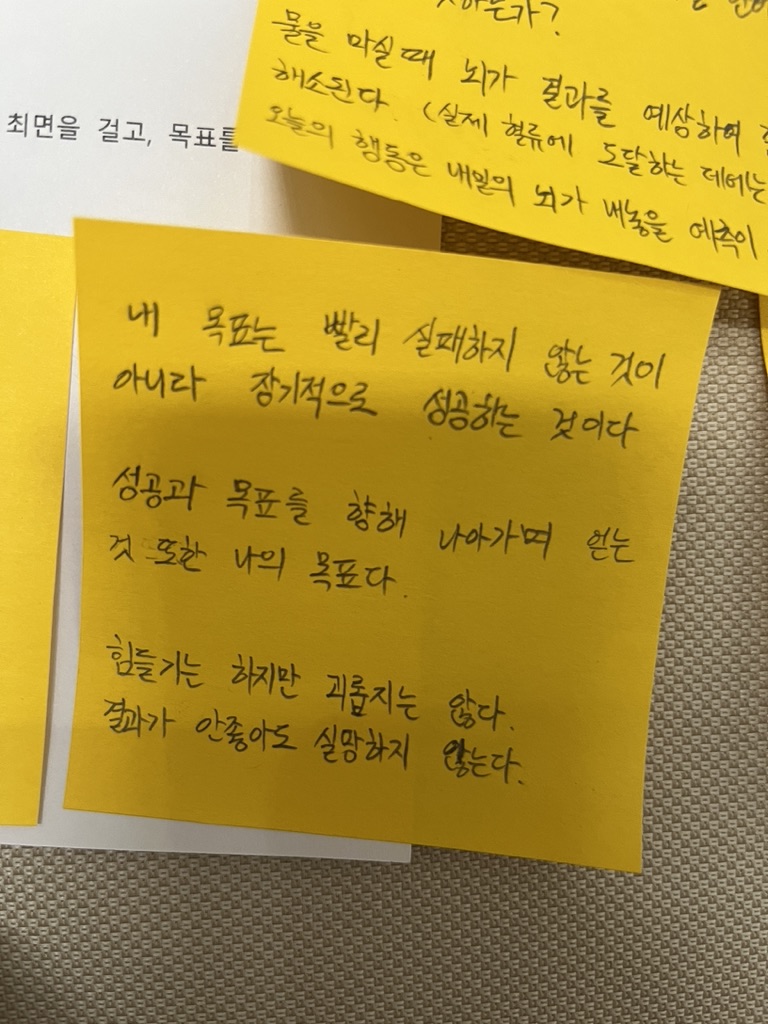 못하는가?
물을 마실 때 뇌가 결과를 예상하여
해소된다. (실제 혈류에 도달하는 데에는
오늘의 행동은 내일의 뇌가 내놓을 예측이
최면을 걸고, 목표를
내 목표는 빨리 실패하지 않는 것이
아니다 장기적으로 성공하는 것이다
성공과 목표를 향해 나아가며 얻는
것 또한 나의 목표다.
힘들기는 하지만 괴롭지는 않다.
결과가 안좋아도 실망하지 않는다.